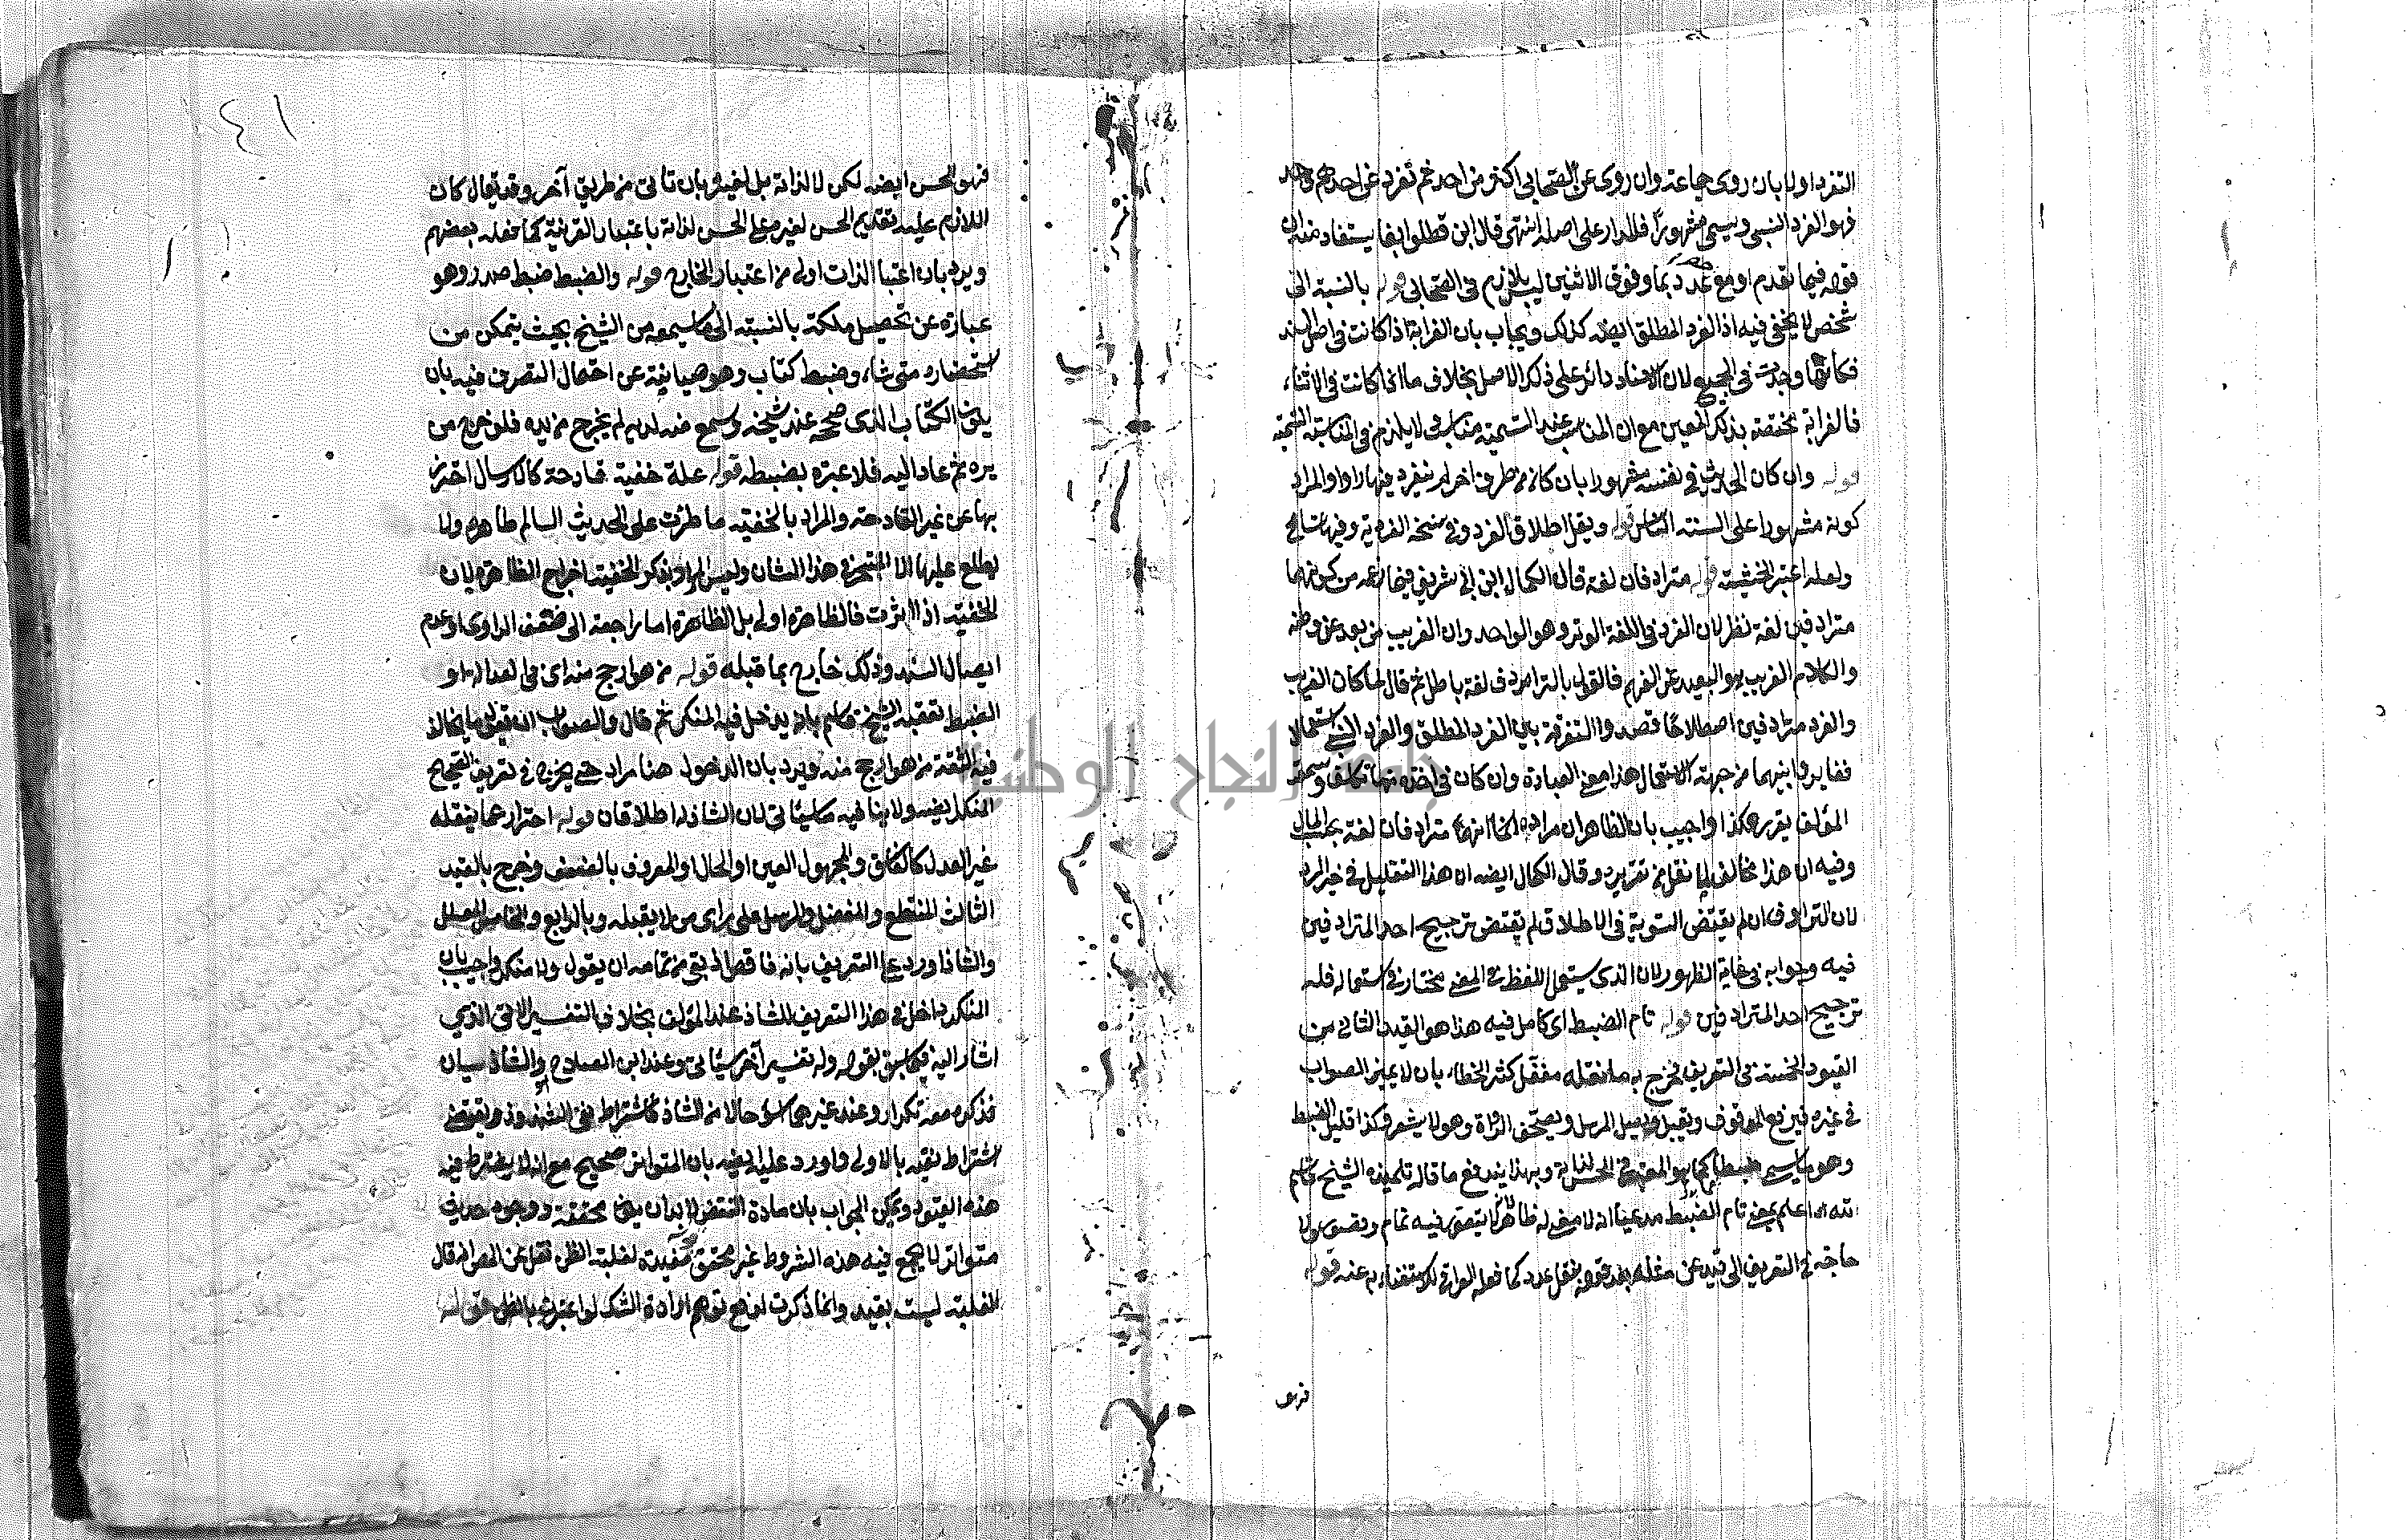 التفرد اولا بان روى جماعة وان روى عن الصحابي اكثر من احد ثم تفرد عن احدهم واحد
فهو الفرد النسبي ويسمى مشهورا فالمدار على اصله انتهى قال ابن قطلوابغا يستفاد منه ان
قوله فيما تقدم او مع حصر عدد بما وفوق الاثنين ليس بلازم في الصحابي قوله بالنسبة الى
شخص لا يخفى فيه اذ الفرد المطلق ايضه كذلك ويجاب بان الغرابة اذا كانت في اصل السند
فكانها وجدت في الجميع لان الاسناد دائر على ذلك الاصل بخلاف ما اذا كانت في الاثناء
فالغرابة مختصة بذلك المعين مع ان المناسب عند التسمية مناسب ولا يلزم في المناسبة التسمية
قوله وان كان الحديث في نفسه مشهورا بان كان من طرق اخر لم ينفرد فيها راو او المراد
كونه مشهورا على السنة الناس قوله ويقل اطلاق الفرد وفي نسخه الفردية وفيها تسامح
ولعله اعتبر الحيثية قوله مترادفان لغة قال الكمال ابن ابي شريف فيما زعمه من كونهما
مترادفين لغة نظر لان الفرد في اللغة الوتر وهو الواحد وان الغريب من بعد عن وطنه
والكلام الغريب هو البعيد عن الفهم فالقول بالترادف لغة باطل ثم قال لما كان الغريب
والفرد مترادفين اصطلاحا قصدوا التفرقة بين الفرد المطلق والفرد النسبي استعمالا
فغايروا بينهما من جهة الاستعمال هذا معنى العبارة وان كان في اخذه منها تكلف وسمعت
المؤلف يقرره هكذا واجيب بان الظاهر ان مراده انهما مترادفان لغة بحسب المآل
وفيه ان هذا مخالف لما نقل من تقريره وقال الكمال ايضه ان هذا التعليل في حيز الرد
لان الترادف ان لم يقتض التسوية في الاطلاق لم يقتض ترجيح احد المترادفين
فيه وجوابه في غاية الظهور لان الذي يستعمل اللفظ في المعنى مختار في استعماله فله
ترجيح احد المترادفين قوله تام الضبط اي كامل فيه هذا هو القيد الثاني من
القيود الخمسة في التعريف فخرج به ما نقله مغفل كثير الخطاء بان لا يميز الصواب
في غيره فيرفع الموقوف ويقبل ويصل المرسل ويصحف الرواة وهو لا يشعر وكذا قليل الضبط
وهو ما يسمى ضبطا كما هو المعتبر في الحسن لذاته وبهذا يندفع ما قاله تلميذه الشيخ قاسم
الله اعلم بمعنى تام الضبط مدعيا انه لا معنى له ظاهرا يتصور فيه تمام وقصور ولا
حاجة في التعريف الى قيد عن مغفل بعد قوله بنقل عدد كما فعله العراقي لاستغنائه به عنه قوله
فهو
٤١
فهو الحسن ايضه لكن لا لذاته بل لغيره بان تاتي من طريق آخر وقد يقال كان
اللازم عليه تقديم الحسن لغيره على الحسن لذاته باعتبار القرينة كما فعله بعضهم
ويرد بان اعتبار الذات اولى من اعتبار الخارج قوله والضبط ضبط صدر وهو
عبارة عن تحصيل ملكة بالنسبة الى ما سمعه من الشيخ بحيث يتمكن من
استحضاره متى شاء وضبط كتاب وهو صيانته عن احتمال التصرف فيه بان
يكون الكتاب الذي صححه عند شيخه وسمع منه لديه لم يخرج من يده فلو خرج من
يده ثم عاد اليه فلا عبرة بضبطه قوله علة خفية قادحة كالارسال احترز
بها عن غير القادحة والمراد بالخفية ما طرت على الحديث السالم ظاهره ولا
يطلع عليها الا المتبحر في هذا الشان وليس المراد بذكر الخفية اخراج الظاهرة لان
الخفية اذا اثرت فالظاهرة اولى بل الظاهرة اما راجعة الى ضعف الراوي او عدم
اتصال السند وذلك خارج بما قبله قوله من هو ارجح منه اي في العدالة او
الضبط تعقبه الشيخ قاسم بانه يدخل فيه المنكر ثم قال والصواب ان يقول ما يخالف
فيه الثقة من هو ارجح منه ويرد بان الدخول هنا مراد حتى يخرج في تعريف الصحيح
المنكر ايضه ولا ينافيه ما سياتي لان الشاذ له اطلاقان قوله احتراز عما ينقله
غير العدل كالفاسق والمجهول العين او الحال او المعروف بالضعف وخرج بالقيد
الثالث المنقطع والمعضل والمرسل على راى من لا يقبله وبالرابع والخامس المعلل
والشاذ اورد على التعريف بانه ناقص اذ بقي من تمامه ان يقول ولا منكر واجيب بان
المنكر داخل في هذا التعريف للشاذ عند المؤلف بخلاف التفسير الاتي الذي
اشار اليه فيما سبق بقوله وله تفسير آخر سياتي وعند ابن الصلاح هو والشاذ سيان
فذكره معه تكرار وعند غيرهما اسوء حالا من الشاذ فاشتراط نفي الشذوذ يقتضي
اشتراط نفيه بالاولى واورد عليه ايضه بان المتواتر صحيح مع انه لا يشترط فيه
هذه القيود ويمكن الجواب بان مادة النقض لا بد ان يكون محققة ووجود حديث
متواتر لا يجمع فيه هذه الشروط غير محقق مفيدة لغلبة الظن نقل عن المص انه قال
الغلبة ليست بقيد وانما ذكرت لدفع توهم ارادة الشك لو اعتبر بالظن